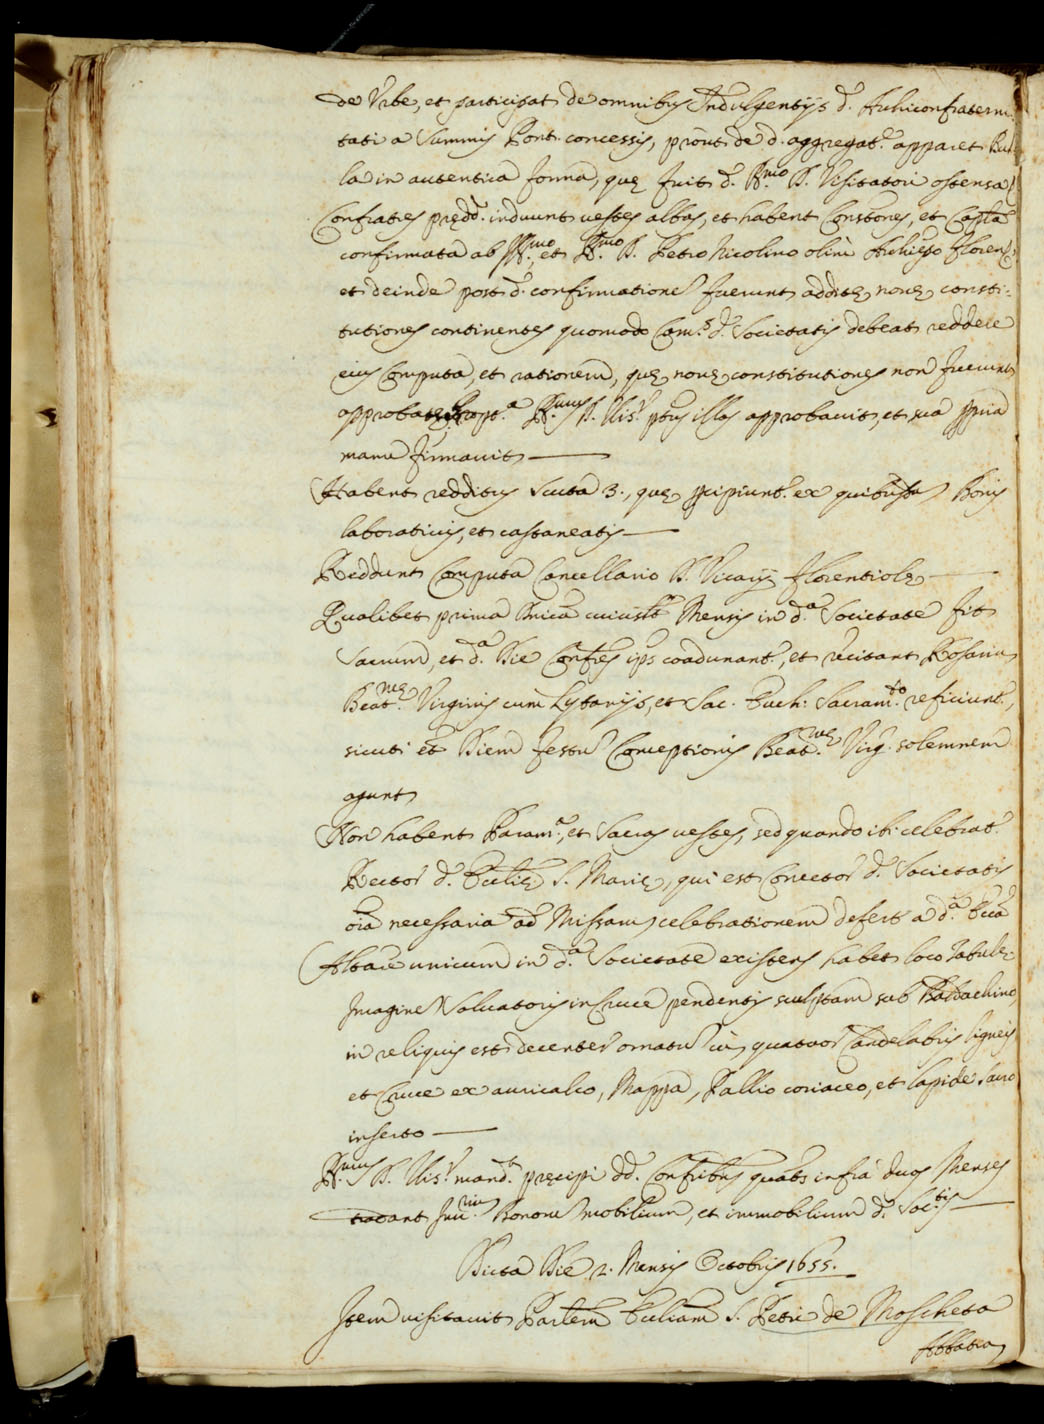 de Urbe, et participat de omnibus Indulgentijs d. Archiconfraterni
tati a Summis Pont. concessis, prout de d. aggregat.e apparet Bul
la in autentica forma, quę fuit d. R.mo D. Visitatori ostensa
Confratres prędd. induunt vestes albas, et habent Const.ones, et Cap.la
confirmata ab Ill.mo, et R.mo D. Petro Nicolino olim Archiep.o Floren.
et deinde post d. confirmatione fuerunt additę nouę consti=
tutiones continentes quomodo Cam.s d. Societatis debeat reddere
eius Computa, et rationem, quę nouę constitutiones non fuerunt
approbatę R.mus D. Vis.r ptus illas approbauit, et sua ppria
manu firmauit
Habent redditus scuta 3., quę pcipiunt. ex quibusda Bonis
laboraticijs, et castaneatis
Reddunt Computa Cancellario D. Vicarij Florentiolę
Qualibet prima Dnica cuiuslt Mensis in d.a Societate fit
Sacrum, et d.a Die Confres ips coadunant., et recitant Rosariu
Beat.mę Virginis cum Lytanijs, et Sac. Euch. Sacram.to reficiunt.,
sicuti et Diem festu Conceptionis Beat.mę Virg. solemnem
agunt
Non habent Param.ta, et Sacras uestes, sed quando ibi celebrat.
Rector d. Ecclię S. Marię, qui est Corrector d. Societatis
oia necessaria ad Missarum celebrationem defert a d.a Ecca
Altare unicum in d.a Societate existens habet loco Tabulę
Imagine Saluatoris in Cruce pendentis sculptam sub Baldachino,
in reliquis est decenter ornatu cu quatuor Candelabris ligneis
et Cruce ex auricalco, Mappa, Pallio coriaceo, et lapide sacro
inserto
R.mus D. Vis.r mand.t pręcipi dd. Confribus quats infra duos Menses
tradant Inu.riu Bonoru mobilium, et immobilium d. Soc.tis
Dicta Die 2. Mensis Octobris 1655.
Item uisitauit Parlem Eccliam S. Petri de Moscheta
Abbatia